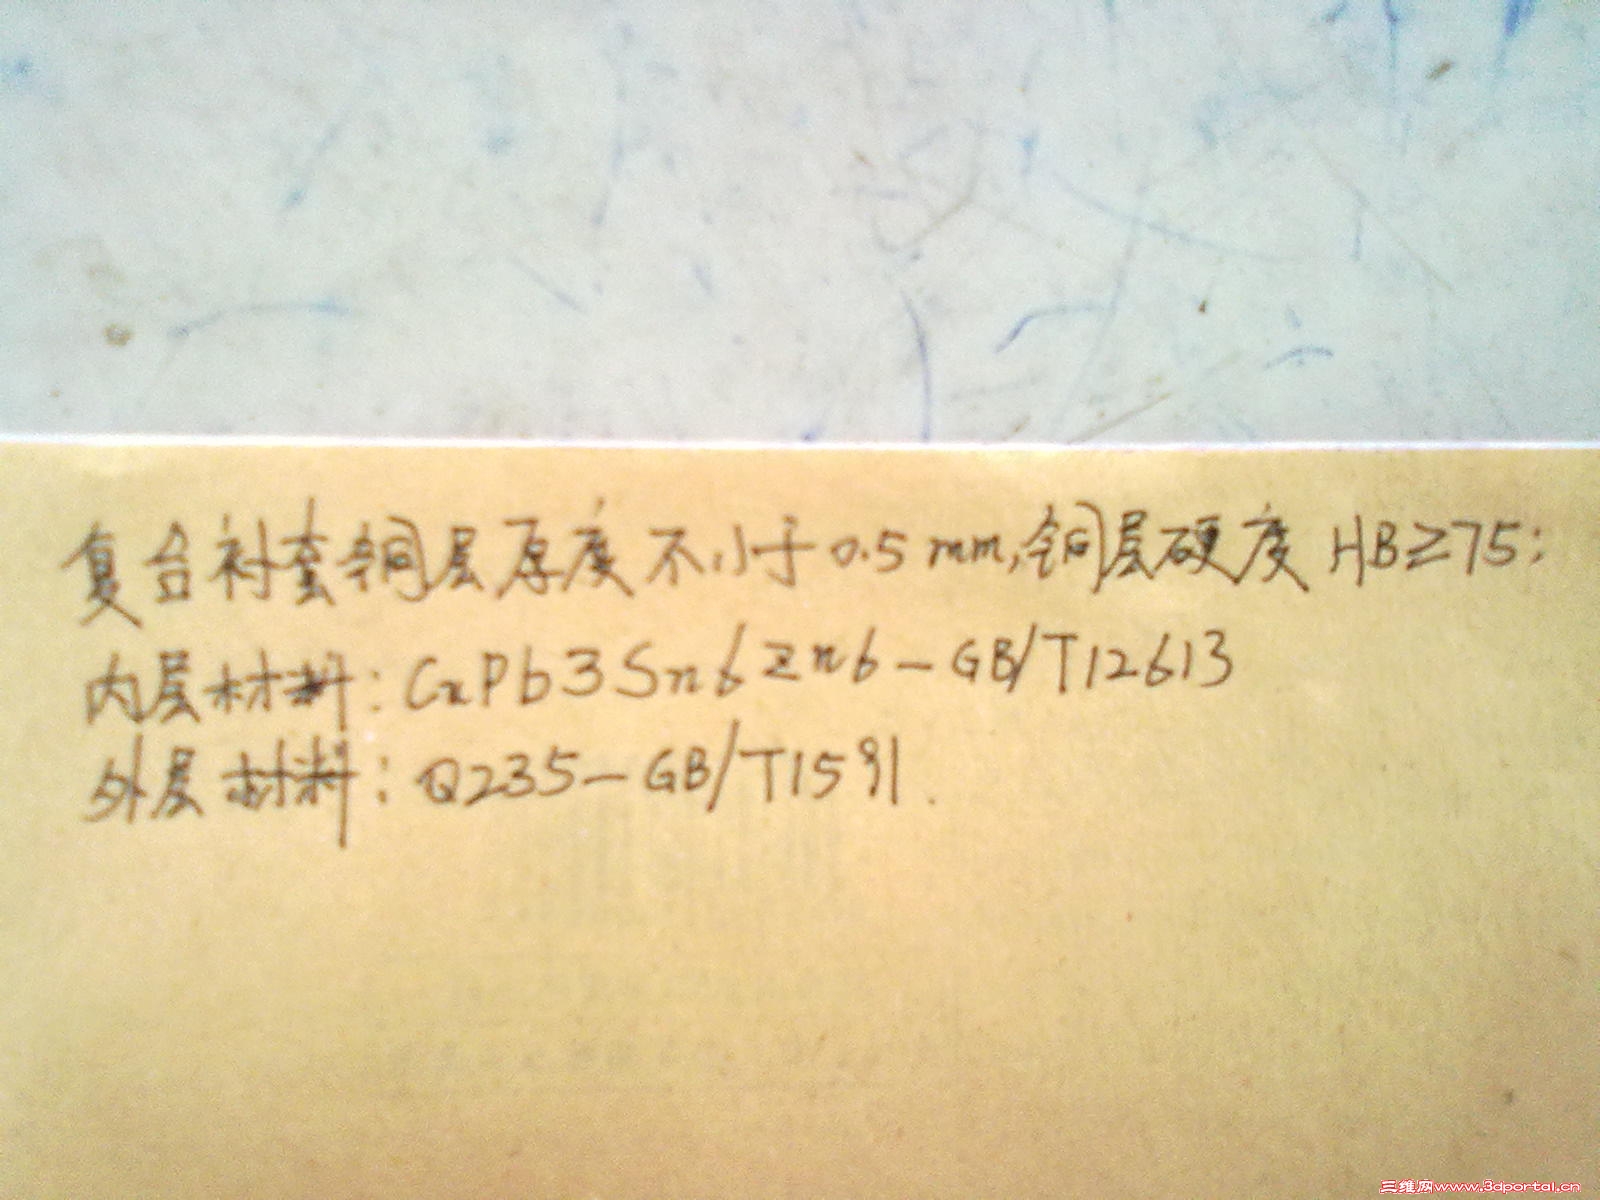 复合衬套铜层厚度不小于0.5mm,铜层硬度HB≥75;
内层材料:CuPb3Sn6Zn6-GB/T12613
外层材料:Q235-GB/T1591.
三维网www.3dportal.cn